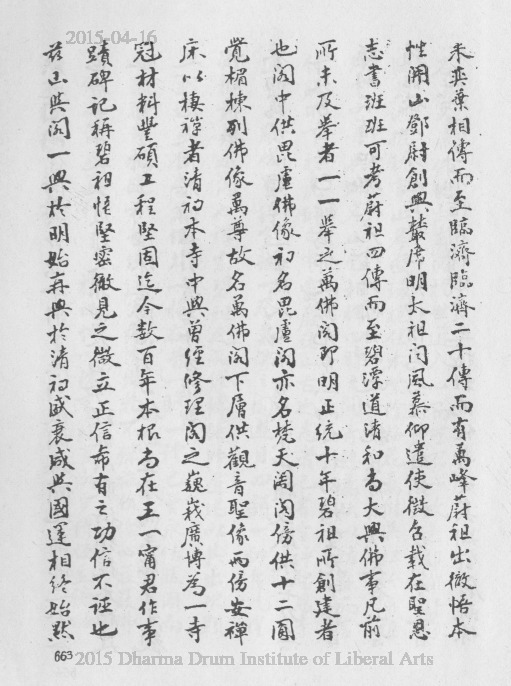 2015-04-16
來奕葉相傳而至臨濟臨濟二十傳而有萬峰蔚祖出徹悟本
性開山鄧尉創興叢席明太祖聞風慕仰遣使徵召載在聖恩
志書班班可考蔚祖四傳而至碧潭道清和尚大興佛事凡前
所未及舉者一一舉之萬佛閣即明正統十年碧祖所創建者
也閣中供毘盧佛像初名毘盧閣亦名梵天閣閣傍供十二圓
覺楣棟列佛像萬尊故名萬佛閣下層供觀音聖像兩傍安禪
床以棲禪者清初本寺中興曾經修理閣之巍峩廣博為一寺
冠材料豐碩工程堅固迄今數百年本根尚在王一甯君作事
蹟碑記稱碧祖悟堅密微見之微立正信希有之功信不誣也
茲山與閣一興於明始再興於清初盛衰咸與國運相終始然
663
2015 Dharma Drum Institute of Liberal Arts